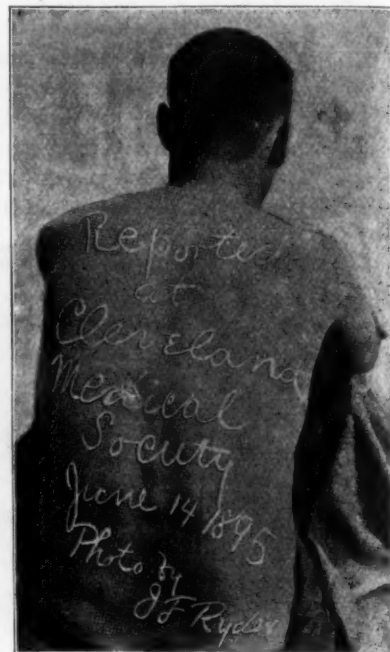 Reported
at
Cleveland
Medical
Society
June 14 1895
Photo by
J F Ryder